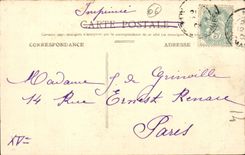 Imprimé
66
CARTE POSTALE
CORRESPONDANCE
ADRESSE
Madame J. de Grinville
14 Rue Ernest Renan
XVe
Paris